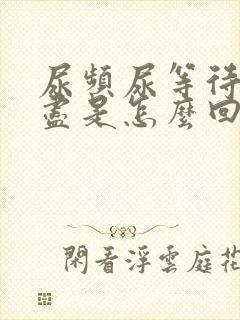 尿頻尿等待
盡是怎麼回
閑看浮雲庭花